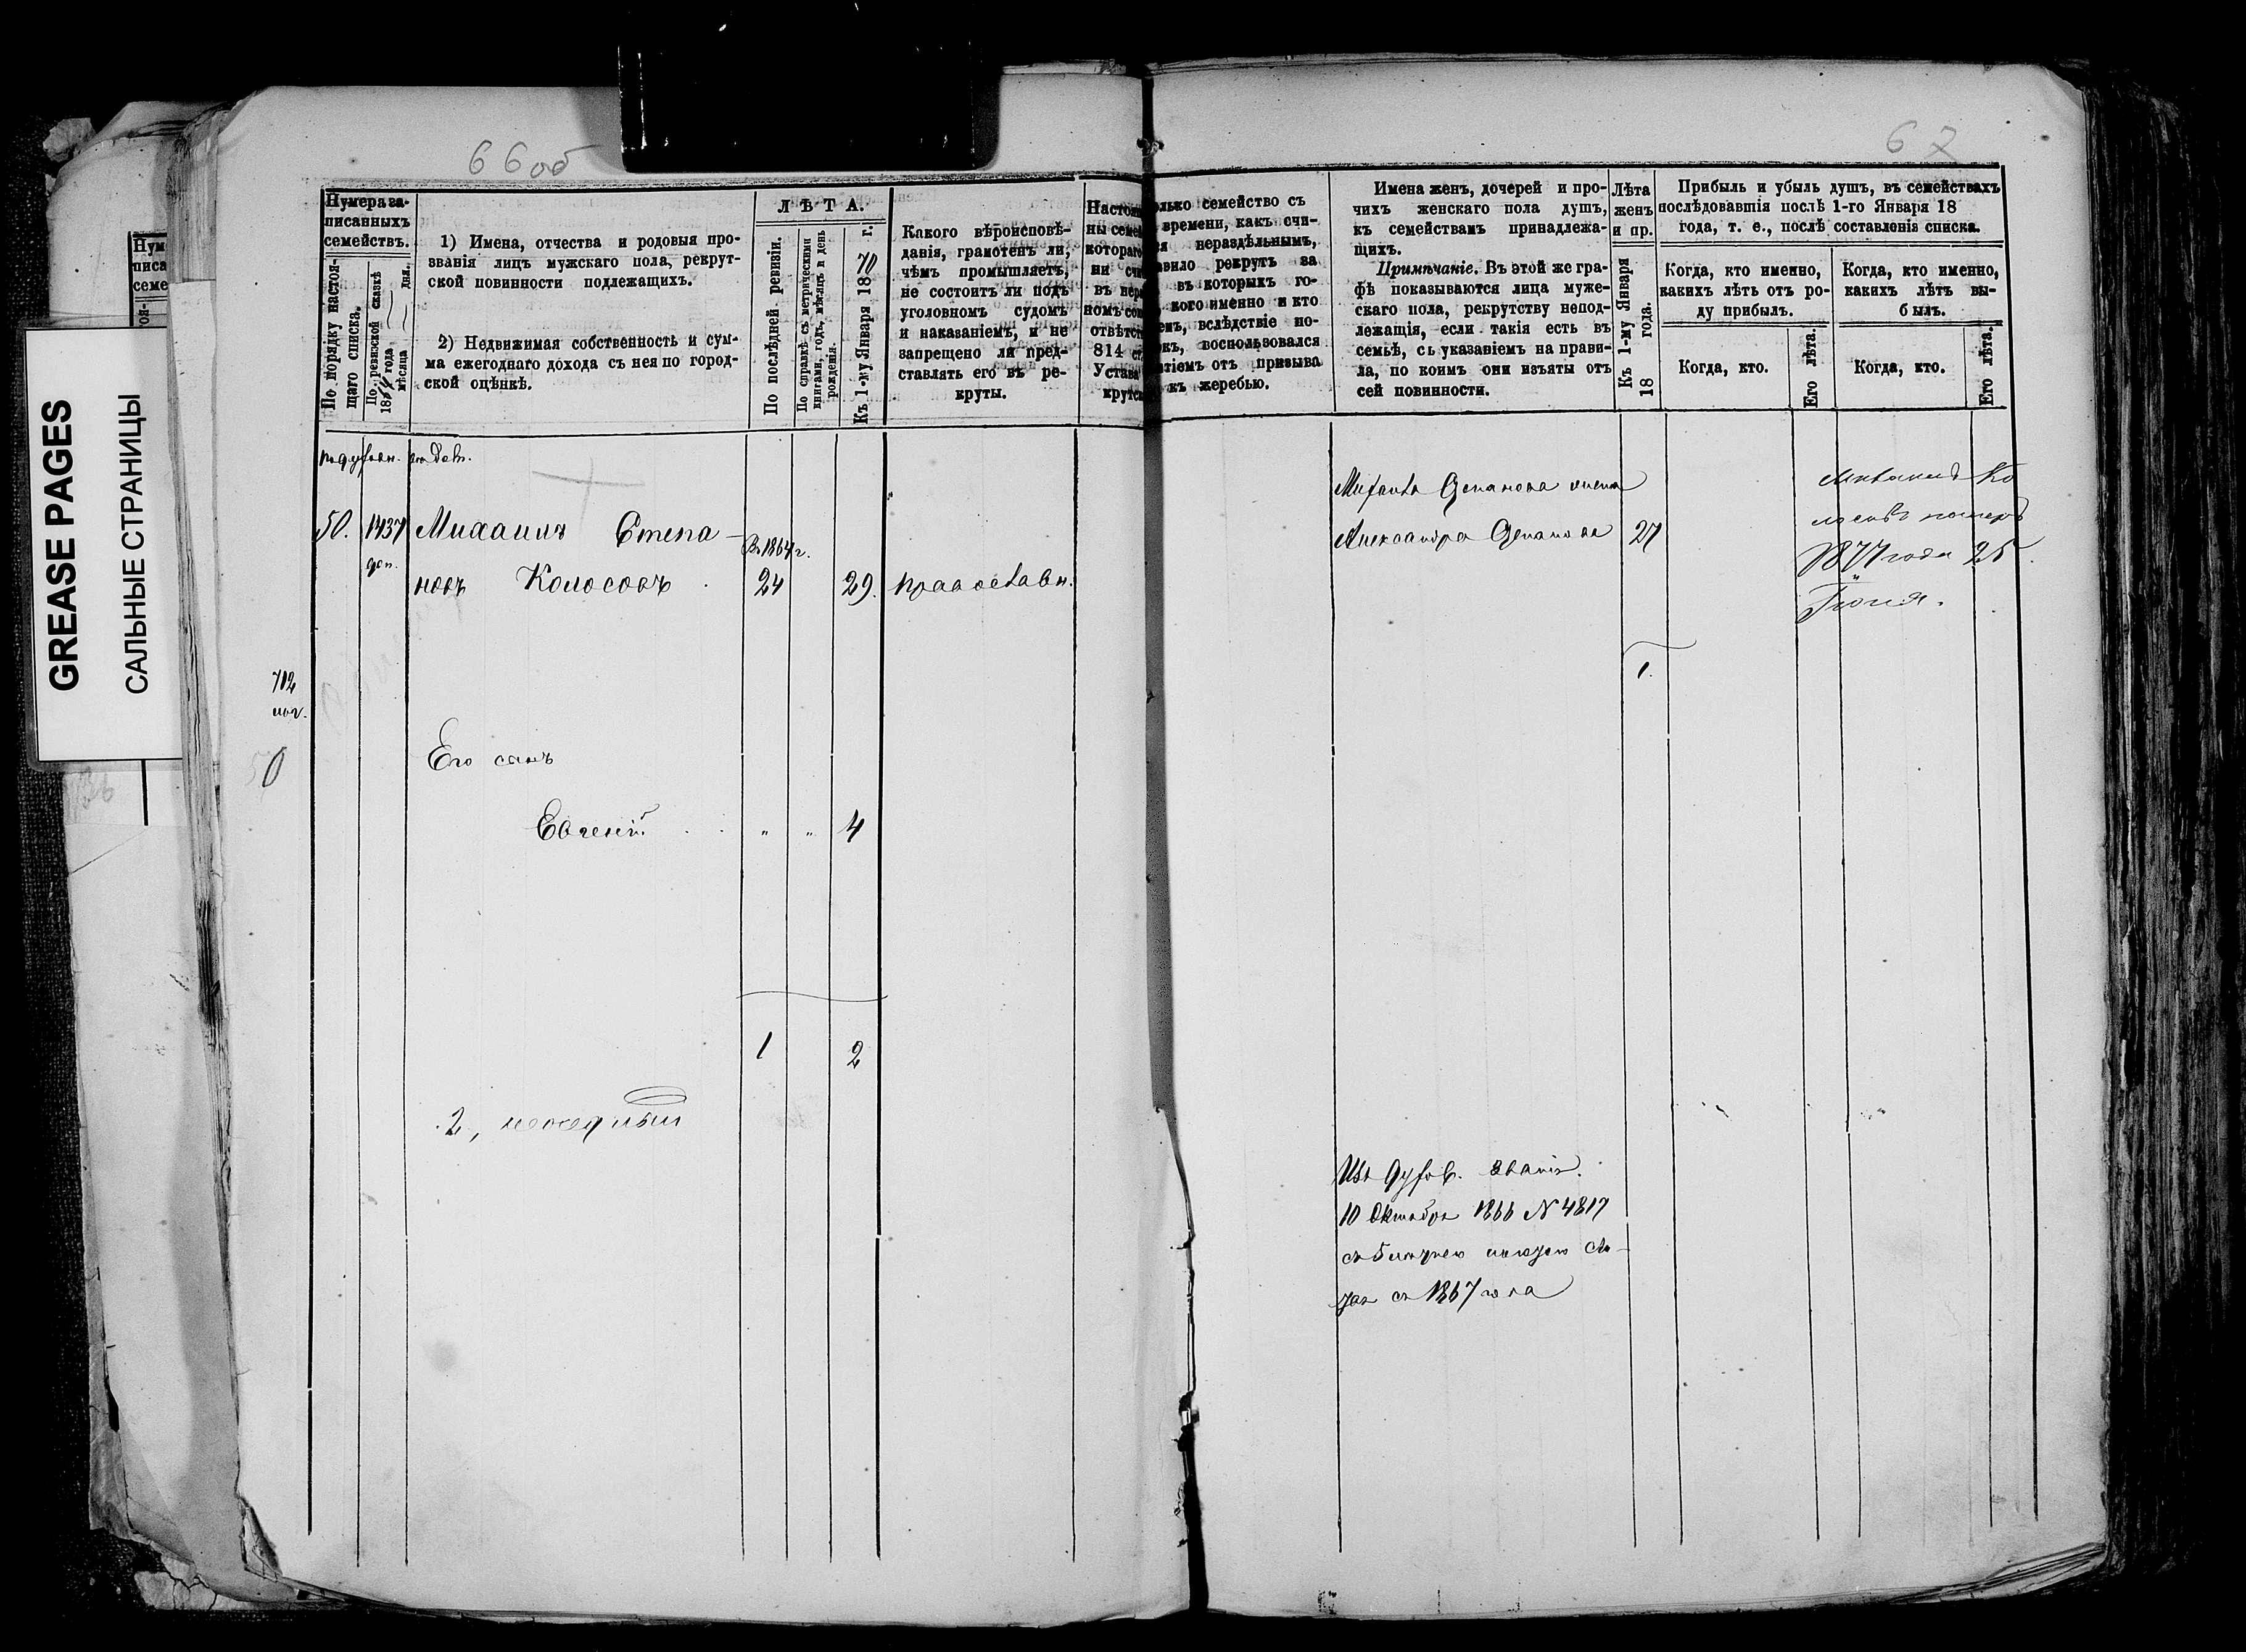 66об
67
GREASE PAGES
САЛЬНЫЕ СТРАНИЦЫ
Нумера за-
писанныхъ
семействъ.
По порядку настоя-
щаго списка.
По ревизской сказкѣ
18 года
мѣсяца дня.
1) Имена, отчества и родовыя про-
званія лицъ мужскаго пола, рекрут-
ской повинности подлежащихъ.
2) Недвижимая собственность и сум-
ма ежегоднаго дохода съ нея по город-
ской оцѣнкѣ.
ЛѢТА.
По послѣдней ревизіи.
По справкѣ съ метрическими
книгами, годъ, мѣсяцъ и день
рожденія.
Къ 1-му Января 1870 г.
Какого вѣроисповѣ-
данія, грамотенъ ли,
чѣмъ промышляетъ,
не состоитъ ли подъ
уголовномъ судомъ
и наказаніемъ, и не
запрещено ли пред-
ставлять его въ ре-
круты.
олько семейство съ
времени, какъ счи-
я нераздѣльнымъ,
авило рекрутъ за
въ которыхъ го-
кого именно и кто
емъ, вслѣдствіе по-
къ, воспользовался
тіемъ отъ призыва
къ жеребью.
Имена женъ, дочерей и про-
чихъ женскаго пола душъ,
къ семействамъ принадлежа-
щихъ.
Примѣчаніе. Въ этой же гра-
фѣ показываются лица муже-
скаго пола, рекрутству непод-
лежащія, если такія есть въ
семьѣ, съ указаніемъ на прави-
ла, по коимъ они изъяты отъ
сей повинности.
Лѣта
женъ
и пр.
Къ 1-му Января
18 года.
Прибыль и убыль душъ, въ семействахъ
послѣдовавшія послѣ 1-го Января 18
года, т. е., послѣ составленія списка.
Когда, кто именно,
какихъ лѣтъ отъ ро-
ду прибылъ.
Когда, кто.
Его лѣта.
Когда, кто именно,
какихъ лѣтъ вы-
былъ.
Когда, кто.
Его лѣта.
50. 1437
доп.
Михаилъ Степа-
новъ Колосовъ
Въ 1864 г.
24 29. православн.
712
50
Его сынъ
Евгеній " " 4
1 2
2,
Михаила Степанова жена
Александра Степанова 27
1.
Михаилъ Ко
лосовъ померъ
1877 года 25
Іюня.
Изъ духов. званія.
10 Октября 1866 N 4817
съ 1867 года